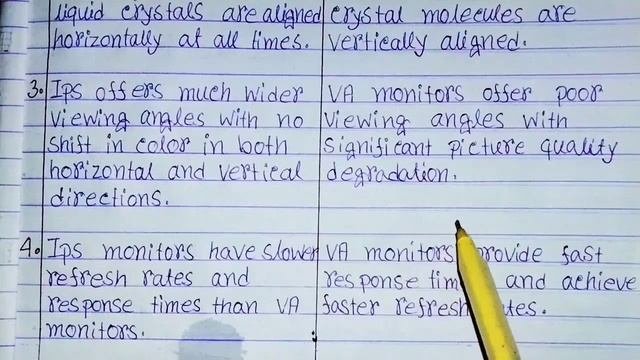 liquid crystals are aligned
horizontally at all times.
crystal molecules are
vertically aligned.
3. Ips offers much wider
viewing angles with no
shift in color in both
horizontal and vertical
directions.
VA monitors offer poor
viewing angles with
significant picture quality
degradation.
4. Ips monitors have slower
refresh rates and
response times than VA
monitors.
VA monitors provide fast
response and achieve
faster refresh